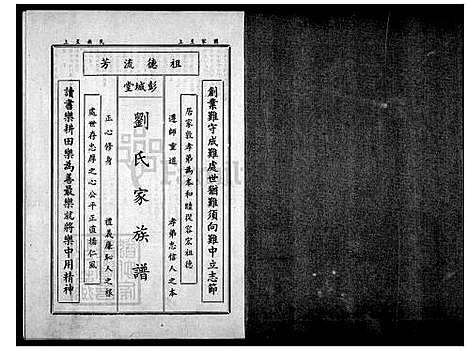 國家至上
民族至上
祖德流芳
彭城堂
創業難守成難處世猶難須向難中立志節
居家敦孝弟為本和睦從容宏祖德
尊師重道
孝弟忠信人之本
劉氏家族譜
正心修身
禮義廉恥人之根
處世存忠厚之心公平正直播仁風
讀書樂耕田樂為善最樂就將樂中用精神